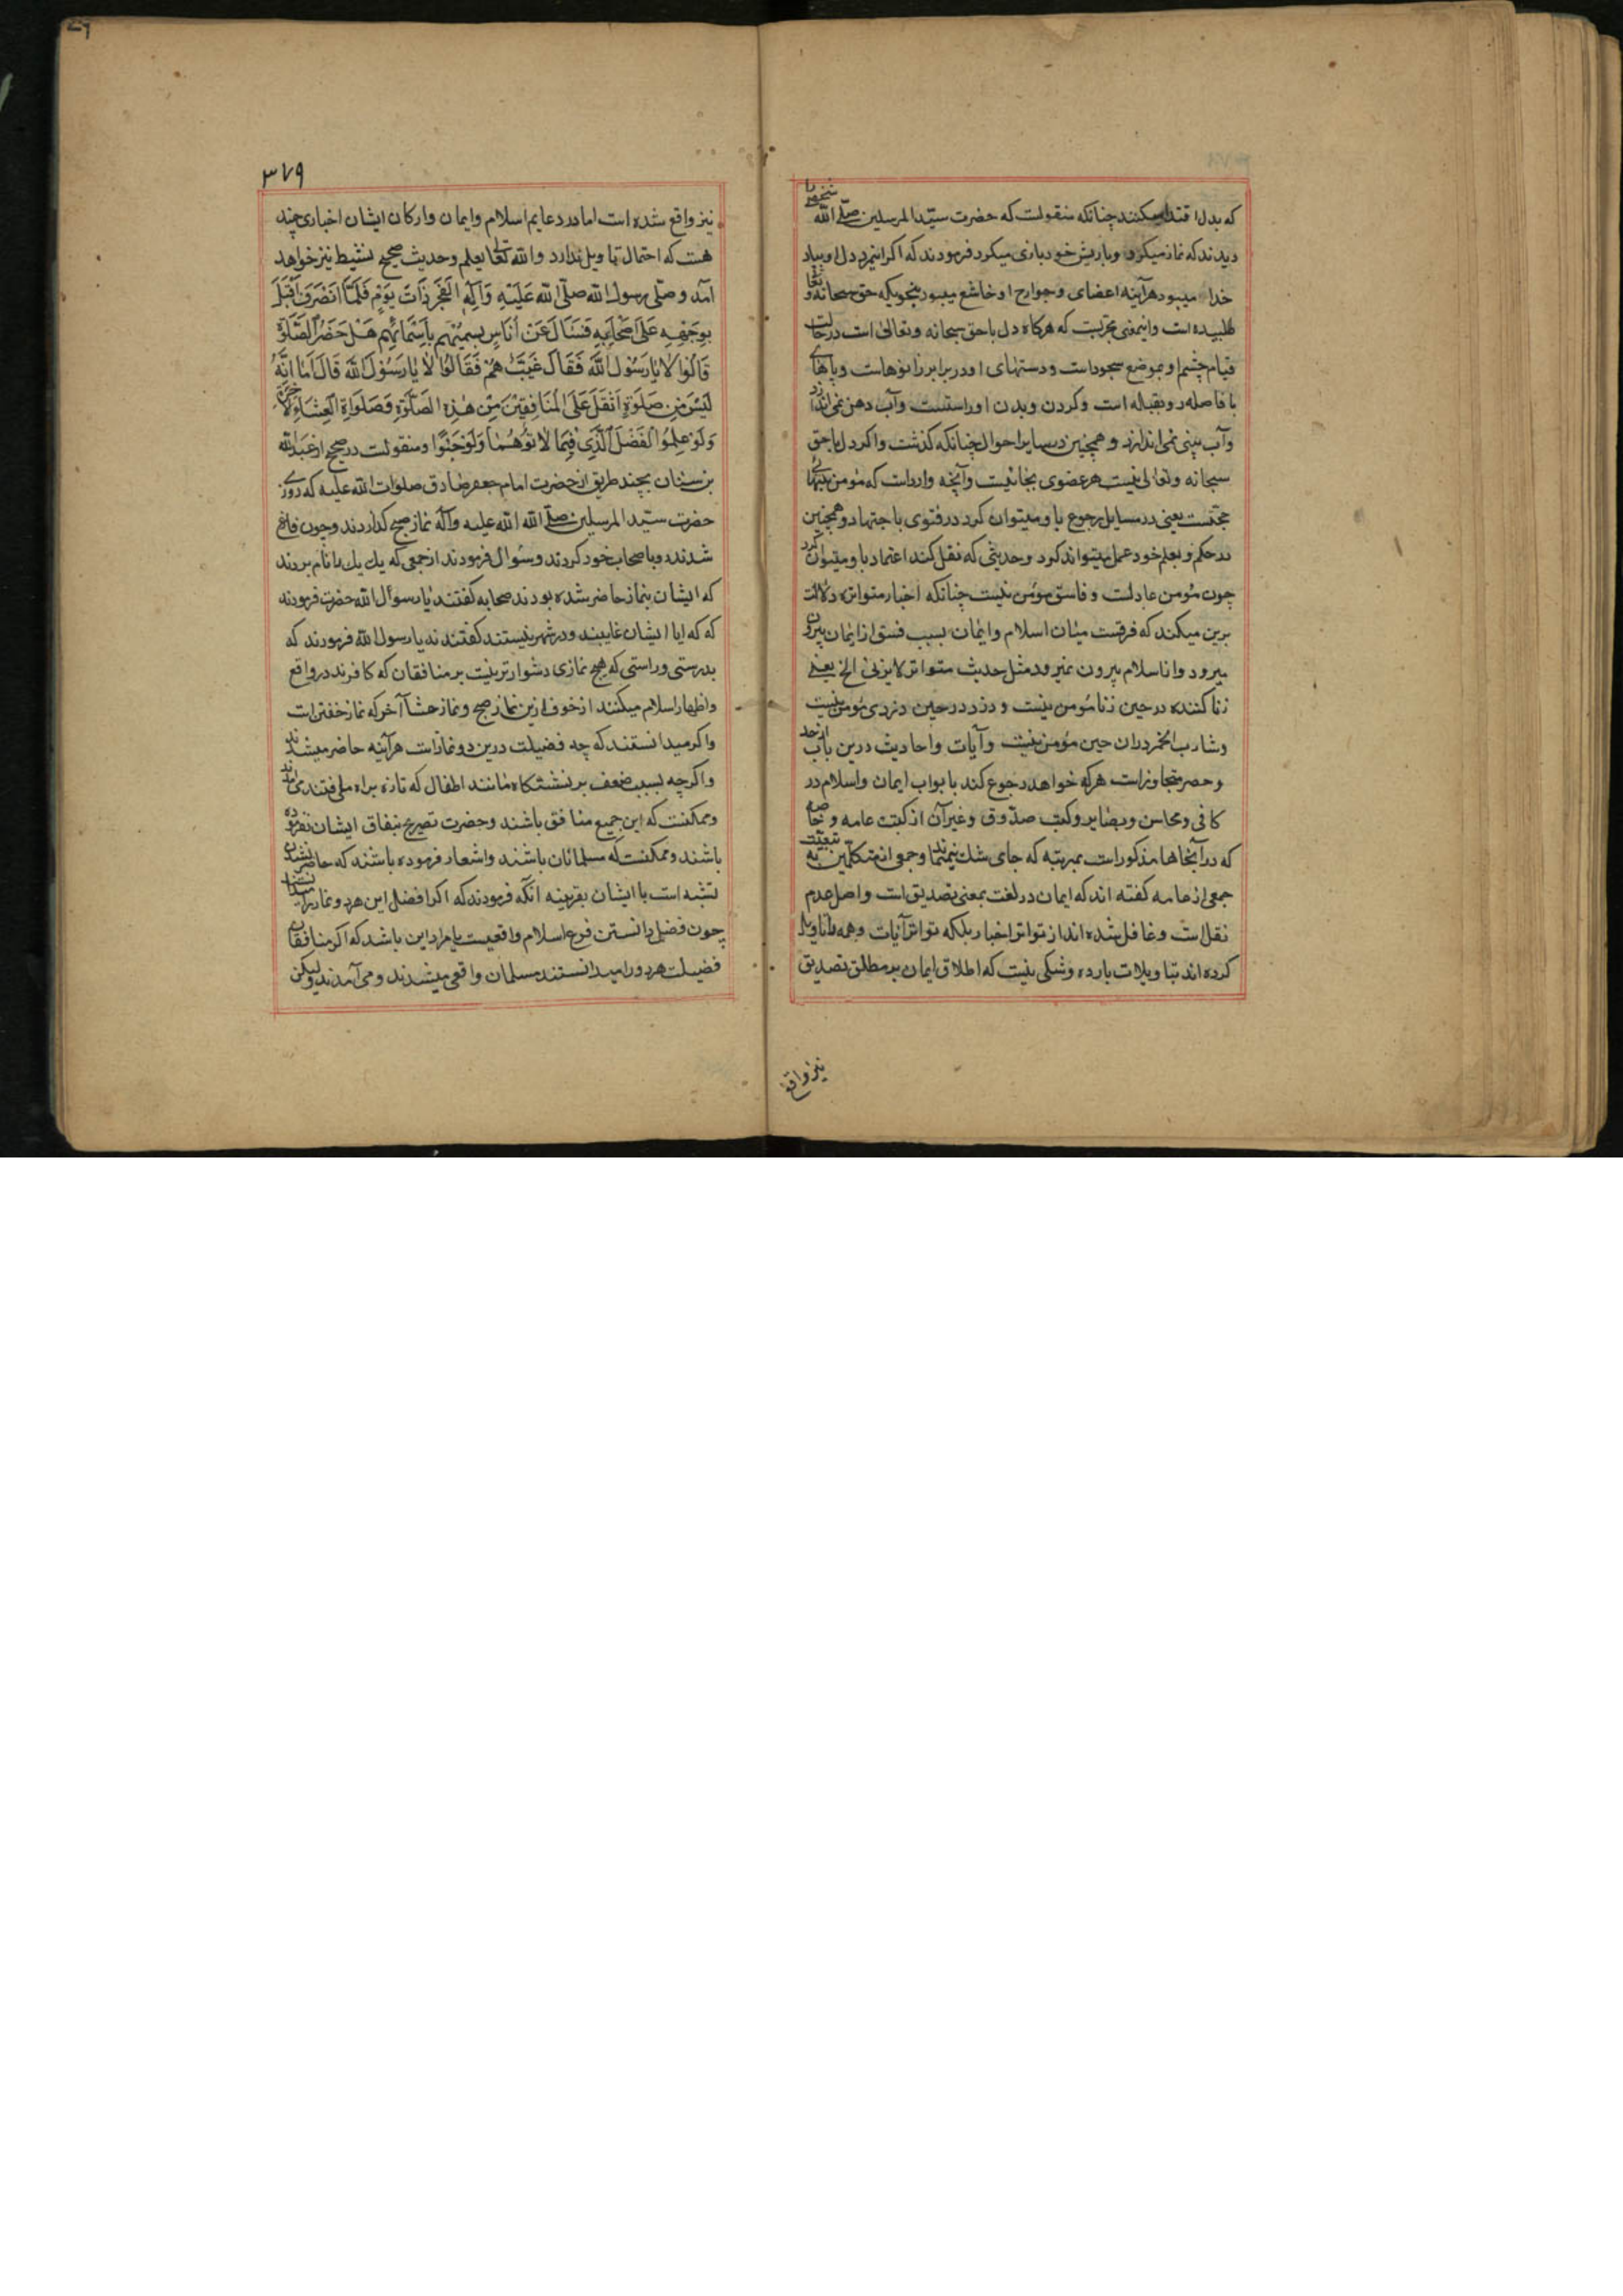 که بدل اقتدا میکنند چنانکه منقولست که حضرت سیّد المرسلین صلّی الله شخصی را
دیدند که نماز میکرد و با ریش خود بازی میکرد فرمودند که اگر اینمرد دل او بیاد
خدا میبود هرآینه اعضای و جوارح او خاشع میبود بنحویکه حق سبحانه و تعا
طلبیده است و اینمعنی مجربست که هرکاه دل با حق سبحانه و تعالی است در حالت
قیام چشم او بموضع سجود است و دستهای او در برابر زانوهاست و پاهای
با فاصله رو بقبله است و کردن و بدن او راستست و آب دهن نمی اندازد
و آب بینی نمی اندازد و همچنین در سایر احوال چنانکه کذشت و اکر دل با حق
سبحانه و تعالی نیست هر عضوی بجائیست و آنچه وارد است که مؤمن بتنهائی
حجّتست یعنی در مسایل رجوع باو میتوان کرد در فتوی با جتهاد و همچنین
در حکم و بعلم خود عمل میتواند کرد و حدیثی که نقل کند اعتماد باو میتوان کرد
چون مؤمن عادلست و فاسق مؤمن نیست چنانکه اخبار متواتره دلالت
برین میکند که فرقست میان اسلام و ایمان بسبب فسق از ایمان بیرون
میرود و از اسلام بیرون نمیرود مثل حدیث متواتر لا یزنی الخ یعنی
زنا کننده در حین زنا مؤمن نیست و دزد در حین دزدی مؤمن نیست
و شارب الخمر دران حین مؤمن نیست و آیات و احادیث درین باب از حد
و حصر متجاوز است هر که خواهد رجوع کند بابواب ایمان و اسلام در
کافی و محاسن و بصایر و کتب صدّوق و غیر آن از کتب عامه و خاصه
که در آنجاها مذکور است بمرتبه که جای شک نیمماند و جمعی از متکلّمین به تبعیّت
جمعی از عامه کفته اند که ایمان در لغت بمعنی تصدیق است و اصل عدم
نقل است و غافل شده اند از تواتر اخبار بلکه تواتر آیات و همه را تاویل
کرده اند بتاویلات بارده و شکی نیست که اطلاق ایمان بر مطلق تصدیق
نیز واقع
۳۷۹
نیز واقع شده است اما در دعایم اسلام و ایمان و ارکان ایشان اخباری چند
هست که احتمال تاویل ندارد و الله تعا یعلم و حدیث صحیح نیز خواهد
آمد وَصَلّی رسول الله صلّی الله عَلَیْهِ وَآلِهِ الْفَجْرَ ذَاتَ یَوْمٍ فَلَمَّا انْصَرَفَ اَقْبَلَ
بِوَجْهِهِ عَلَی اَصْحَابِهِ فَسَأَلَ عَنْ اُنَاسٍ یسمیهم بِاَسْمَائِهِم هَلْ حَضَرُ الصَّلوةَ
قَالُوا لَا یَا رَسُولَ اللّهِ فَقَالَ غَیَبٌ هُمْ فَقَالُوا لَا یَا رَسُولَ اللّهِ قَالَ اَمَا اِنَّهُ
لَیْسَ مِن صَلوةٍ اَثْقَلَ عَلَی الْمُنَافِقِیْنَ مِنْ هٰذِهِ الصَّلوةِ وَصَلوةِ الْعِشَاءِ الآخرة
وَلَوْ عَلِمُوا الْفَضْلَ الَّذِی فِیهِمَا لَاتَوْهُمَا وَلَوْ حَبْوًا و منقولست در صحیح از عبد الله
بن سنان بچند طریق از حضرت امام جعفر صادق صلوات الله علیه که روزی
حضرت سیّد المرسلین صلّی الله الله علیه و آله نماز صبح کذاردند و چون فارغ
شدند رو باصحاب خود کردند و سئوال فرمودند از جمعی که یک یک را نام بردند
که ایشان بنماز حاضر شده بودند صحابه کفتند نه یا رسول الله حضرت فرمودند
که که ایا ایشان غایبند و در شهر نیستند کفتند نه یا رسول الله فرمودند که
بدرستی و راستی که هیچ نمازی دشوارتر نیست بر منافقان که کافرند در واقع
و اظهار اسلام میکنند از خوف ازین نماز صبح و نماز عشآ آخر که نماز خفتن است
و اکر میدانستند که چه فضیلت درین دو نماز است هرآینه حاضر میشدند
و اکرچه بسبب ضعف بر نشستکاه مانند اطفال که تازه براه می افتند می آمدند
و ممکنست که این جمع منافق باشند و حضرت تصریح بنفاق ایشان نفرموده
باشند و ممکنست که مسلمانان باشند و اشعار فرموده باشند که حاضر نشدن
تشبه است با ایشان بقرینه انکه فرمودند که اکر افضل این هر دو نماز را میدانستند
چون فضل دانستن فرع اسلام واقعیست یا مراد این باشد که اکر منافقان
فضیلت هر دو را میدانستند مسلمان واقعی میشدند و می آمدند و لیکن